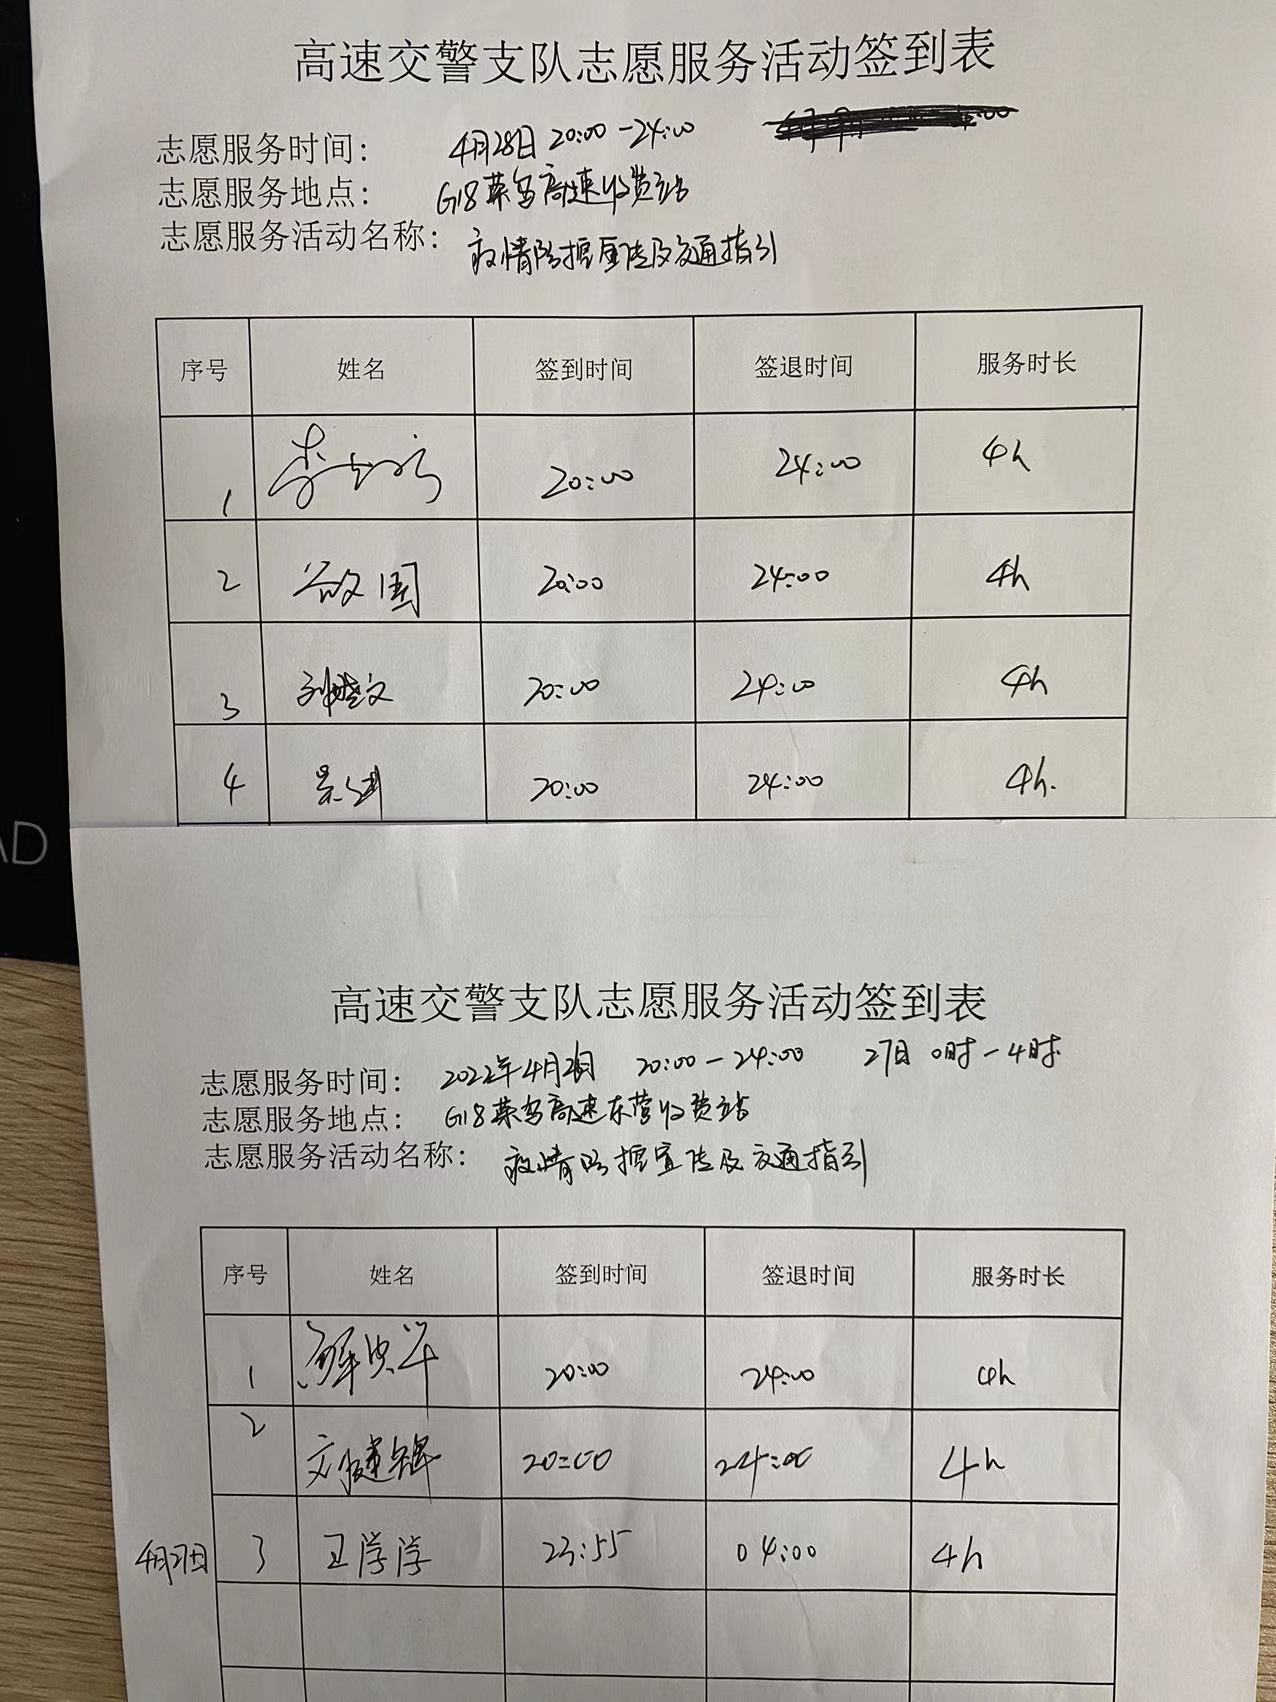 高速交警支队志愿服务活动签到表
志愿服务时间： 4月28日 20:00-24:00
志愿服务地点： G18荣乌高速收费站
志愿服务活动名称： 疫情防控宣传及交通指引
序号 姓名 签到时间 签退时间 服务时长
1 20:00 24:00 4h
2 国 20:00 24:00 4h
3 刘楚文 20:00 24:00 4h
4 吴 20:00 24:00 4h.
AD
高速交警支队志愿服务活动签到表
志愿服务时间： 2022年4月26日 20:00-24:00 27日 0时-4时
志愿服务地点： G18荣乌高速东营收费站
志愿服务活动名称： 疫情防控宣传及交通指引
序号 姓名 签到时间 签退时间 服务时长
1 20:00 24:00 4h
2 20:00 24:00 4h
4月27日 3 卫学学 23:55 04:00 4h